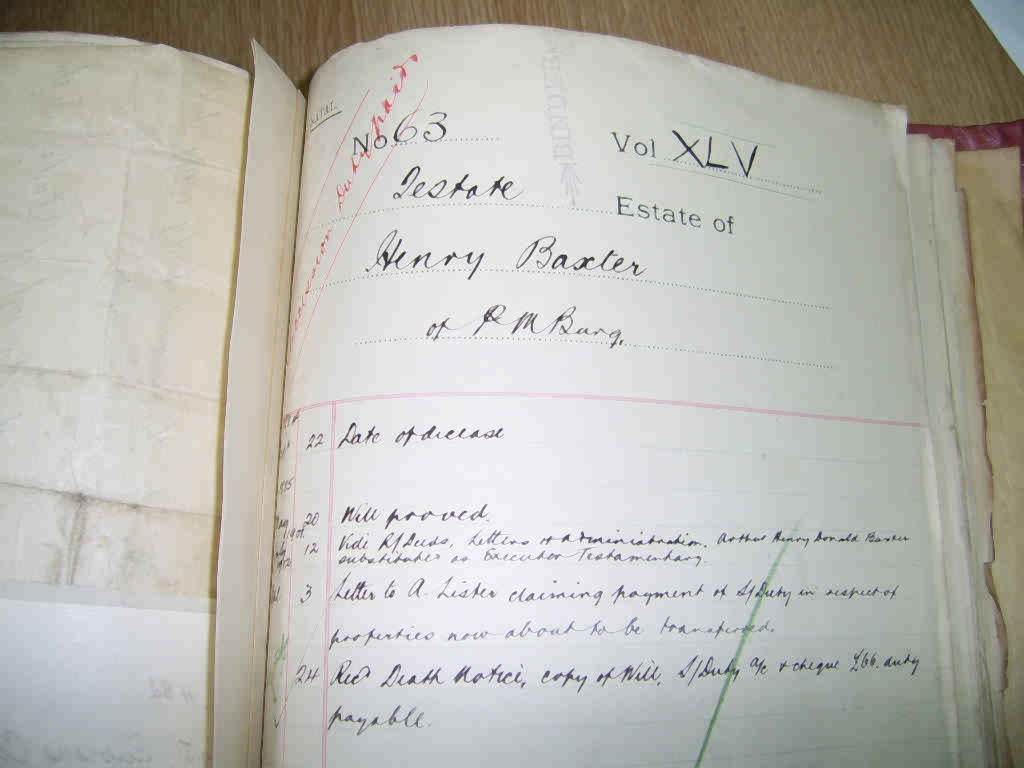 NATAL.
Duty paid
No 63
BINDER
Vol XLV
Testate Estate of
Henry Baxter
of P M Burg.
22 Date of decease
20 Will proved.
12 Vide R/Deeds, Letters of administration. Arthur Henry Donald Baxter
substituted as Executor Testamentary.
3 Letter to A. Lister claiming payment of S/Duty in respect of
properties now about to be transferred.
24 Recd Death Notice, copy of Will, S/Duty a/c & cheque £66. duty
payable.